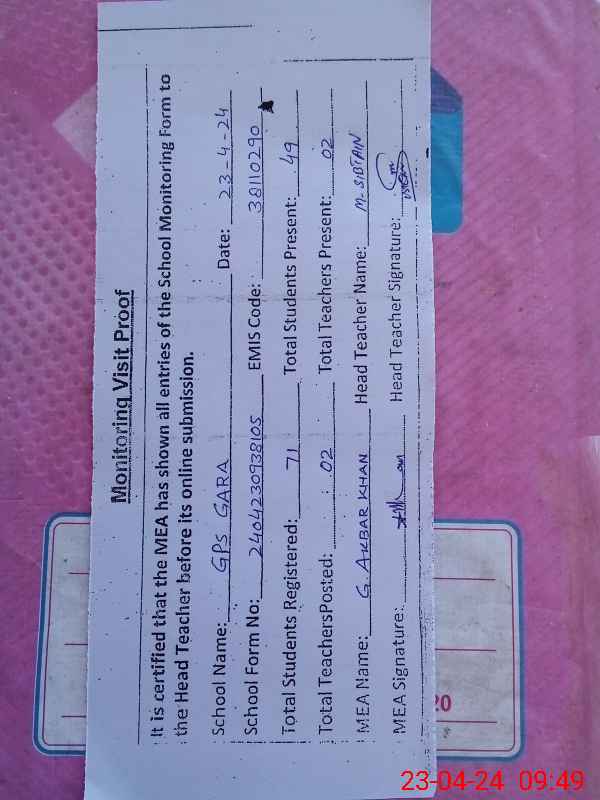 Monitoring Visit Proof
It is certified that the MEA has shown all entries of the School Monitoring Form to
the Head Teacher before its online submission.
School Name: GPS GARA Date: 23-4-24
School Form No: 2404230938105 EMIS Code: 38110290
Total Students Registered: 71 Total Students Present: 49
Total TeachersPosted: 02 Total Teachers Present: 02
MEA Name: G. AKBAR KHAN Head Teacher Name: M. SIBTAIN
MEA Signature: Head Teacher Signature:
20
23-04-24 09:49